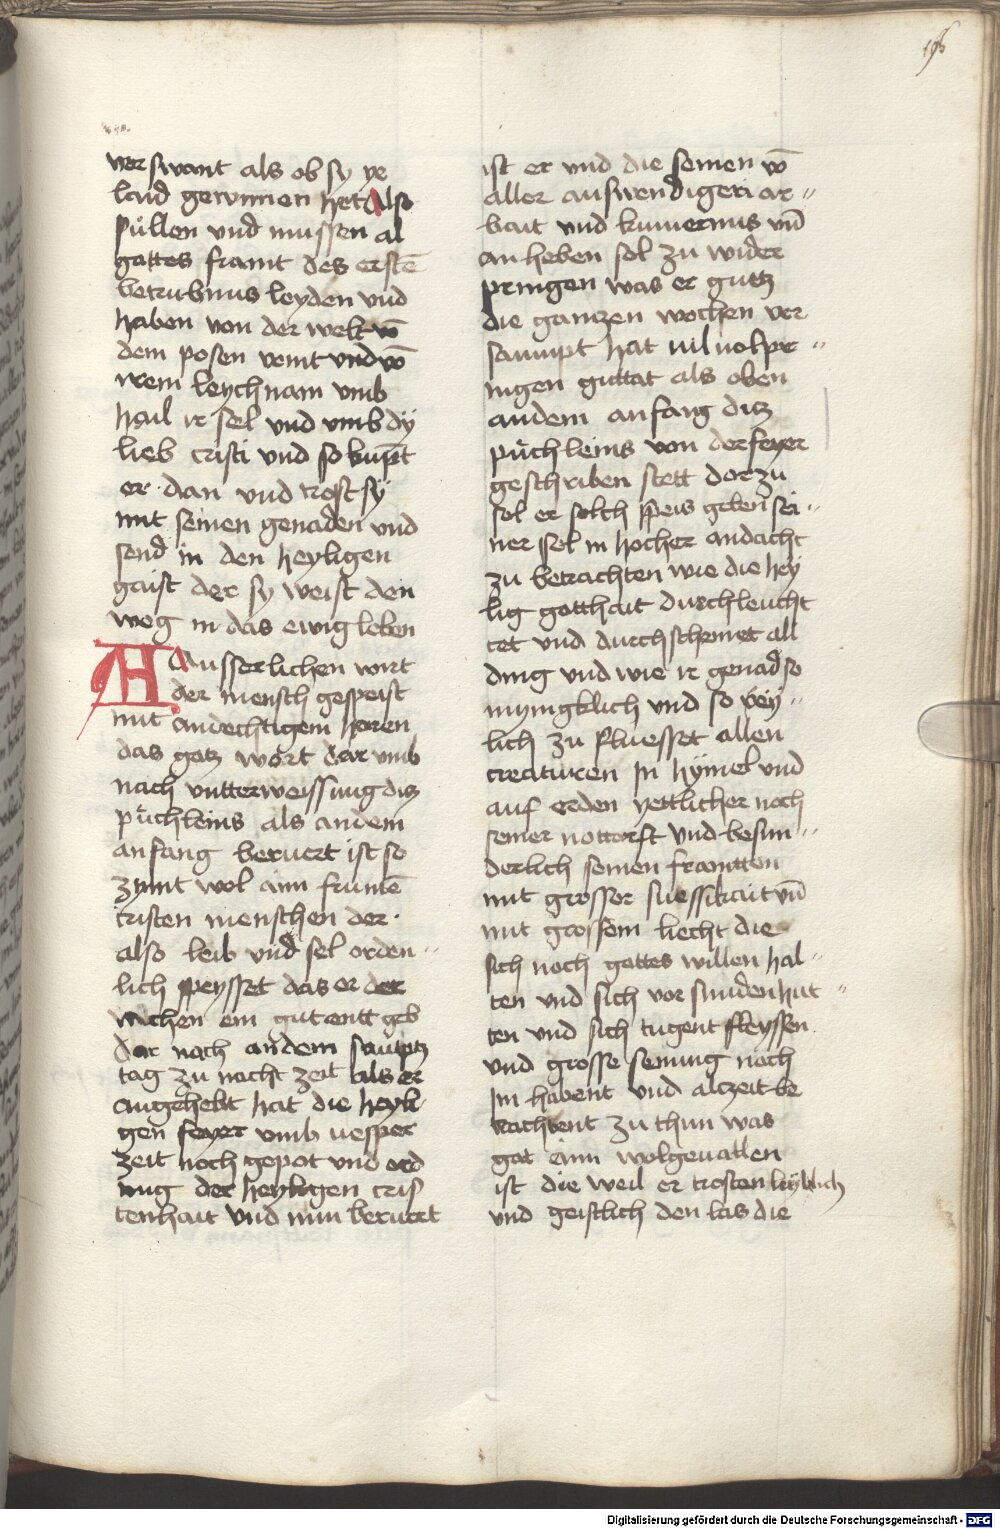 196
verswant als ob sy ye
laid gewunnen het Also
süllen und mussen al
gottes frawnt des erstē
betrubnus leyden vnd
haben von der welt vō
dem posen veint vnd vō
irem leychnam vmb
hail ir sel vnd vmb dÿ
lieb cristi vnd so kumpt
er dan vnd trost sy
mit seinen genaden vnd
send in den heyligen
gaist der sy weist den
weg in das ewig leben
Ausserlichen wirt
der mensch gespeist
mit andechtigem horen
das gotz wort dar vmb
nach vntterweissung ditz
püchleins als an dem
anfang beruert ist so
zymt wol ainn frumē
cristen menschen der
also leib vnd sel orden
lich speysset das er der
wochen ein gut entt geb
dar nach an dem samptz
tag zu nacht zeit als er
angehebt hat die heyli
gen feyer vmb uesper
zeit noch gepot vnd ord
nug der heyligen cris
tenhait vnd nun beruet
ist er vnd die seinen vō
aller auswendigen ar
bait vnd kumernus vnd
an heben sol zu wider
pringen was er guttz
die ganczen wochen ver
saumpt hat mit volpr
ingen guttat als oben
an dem anfang ditz
püchleins von der feyer
geschriben stett dor zu
sol er solch speis geben sei
ner sel in hocher andacht
zu betrachten wie die hey
lig gotthait durchleucht
tet vnd durchscheinet all
ding vnd wie ir genad so
mynigklich vnd so rey
lich zu fluesset allen
creaturen in hymel vnd
auf erden yettlicher noch
seiner nottorft vnd besun
derlich seinen frawntten
mit grosser suessikait vnd
mit grossem liecht die
sich noch gottes willen hal
ten vnd sich vor sunden hut
ten vnd sich tugent fleyssen
vnd grosse senung noch
im habent vnd alczeit be
trachtent zu thun was
got ainn wolgeuallen
ist die weil er trosten leyblich
vnd geistlich den las die
Digitalisierung gefördert durch die Deutsche Forschungsgemeinschaft - DFG